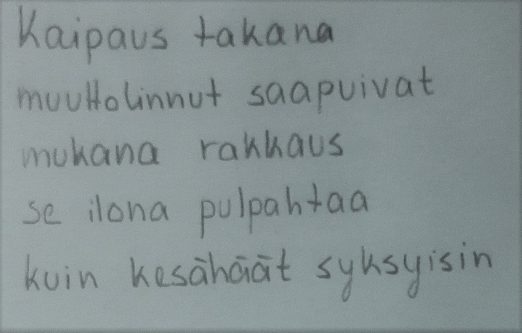 Kaipaus takana
muuttolinnut saapuivat
mukana rakkaus
se ilona pulpahtaa
kuin kesähäät syksyisin